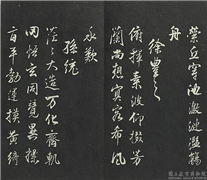 縈丘穿池激湍連濫觴
舟
徐豐之
俯揮素波仰掇芳
蘭尚想嘉客希風
永歎
孫統
茫茫大造萬化齊軌
罔悟玄同競異摽
旨平勃運謀黃綺